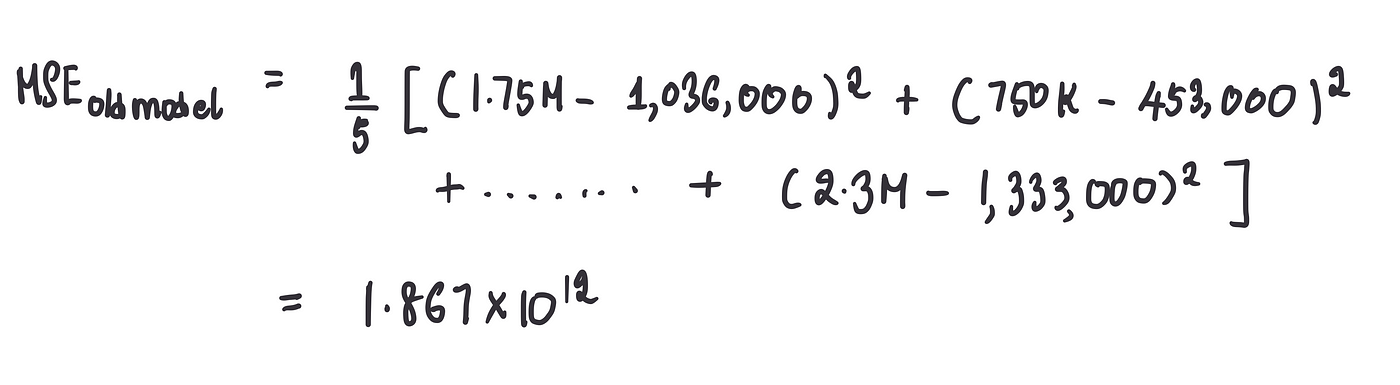 MSE old model = 1/5 [ (1.75M - 1,036,000)² + (750K - 453,000)²
+ ....... + (2.3M - 1,333,000)² ]
= 1.867 × 10¹²